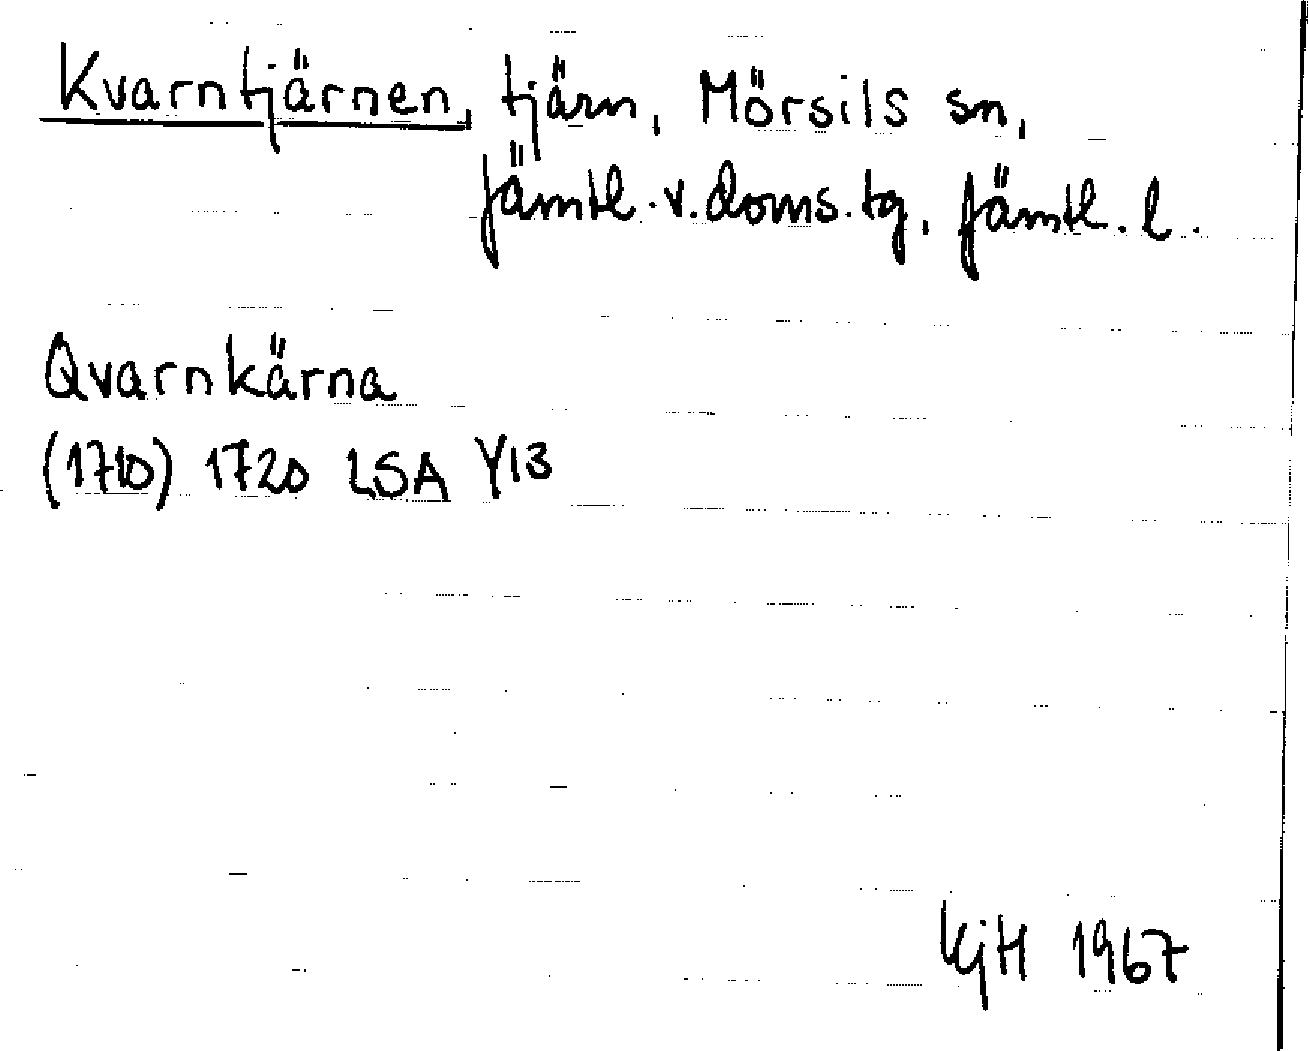 Kvarntjärnen, tjärn, Mörsils sn,
Jämtl. v. doms. tg, Jämtl. l.
Qvarnkärna
(1710) 1720 LSA Y13
KjH 1967